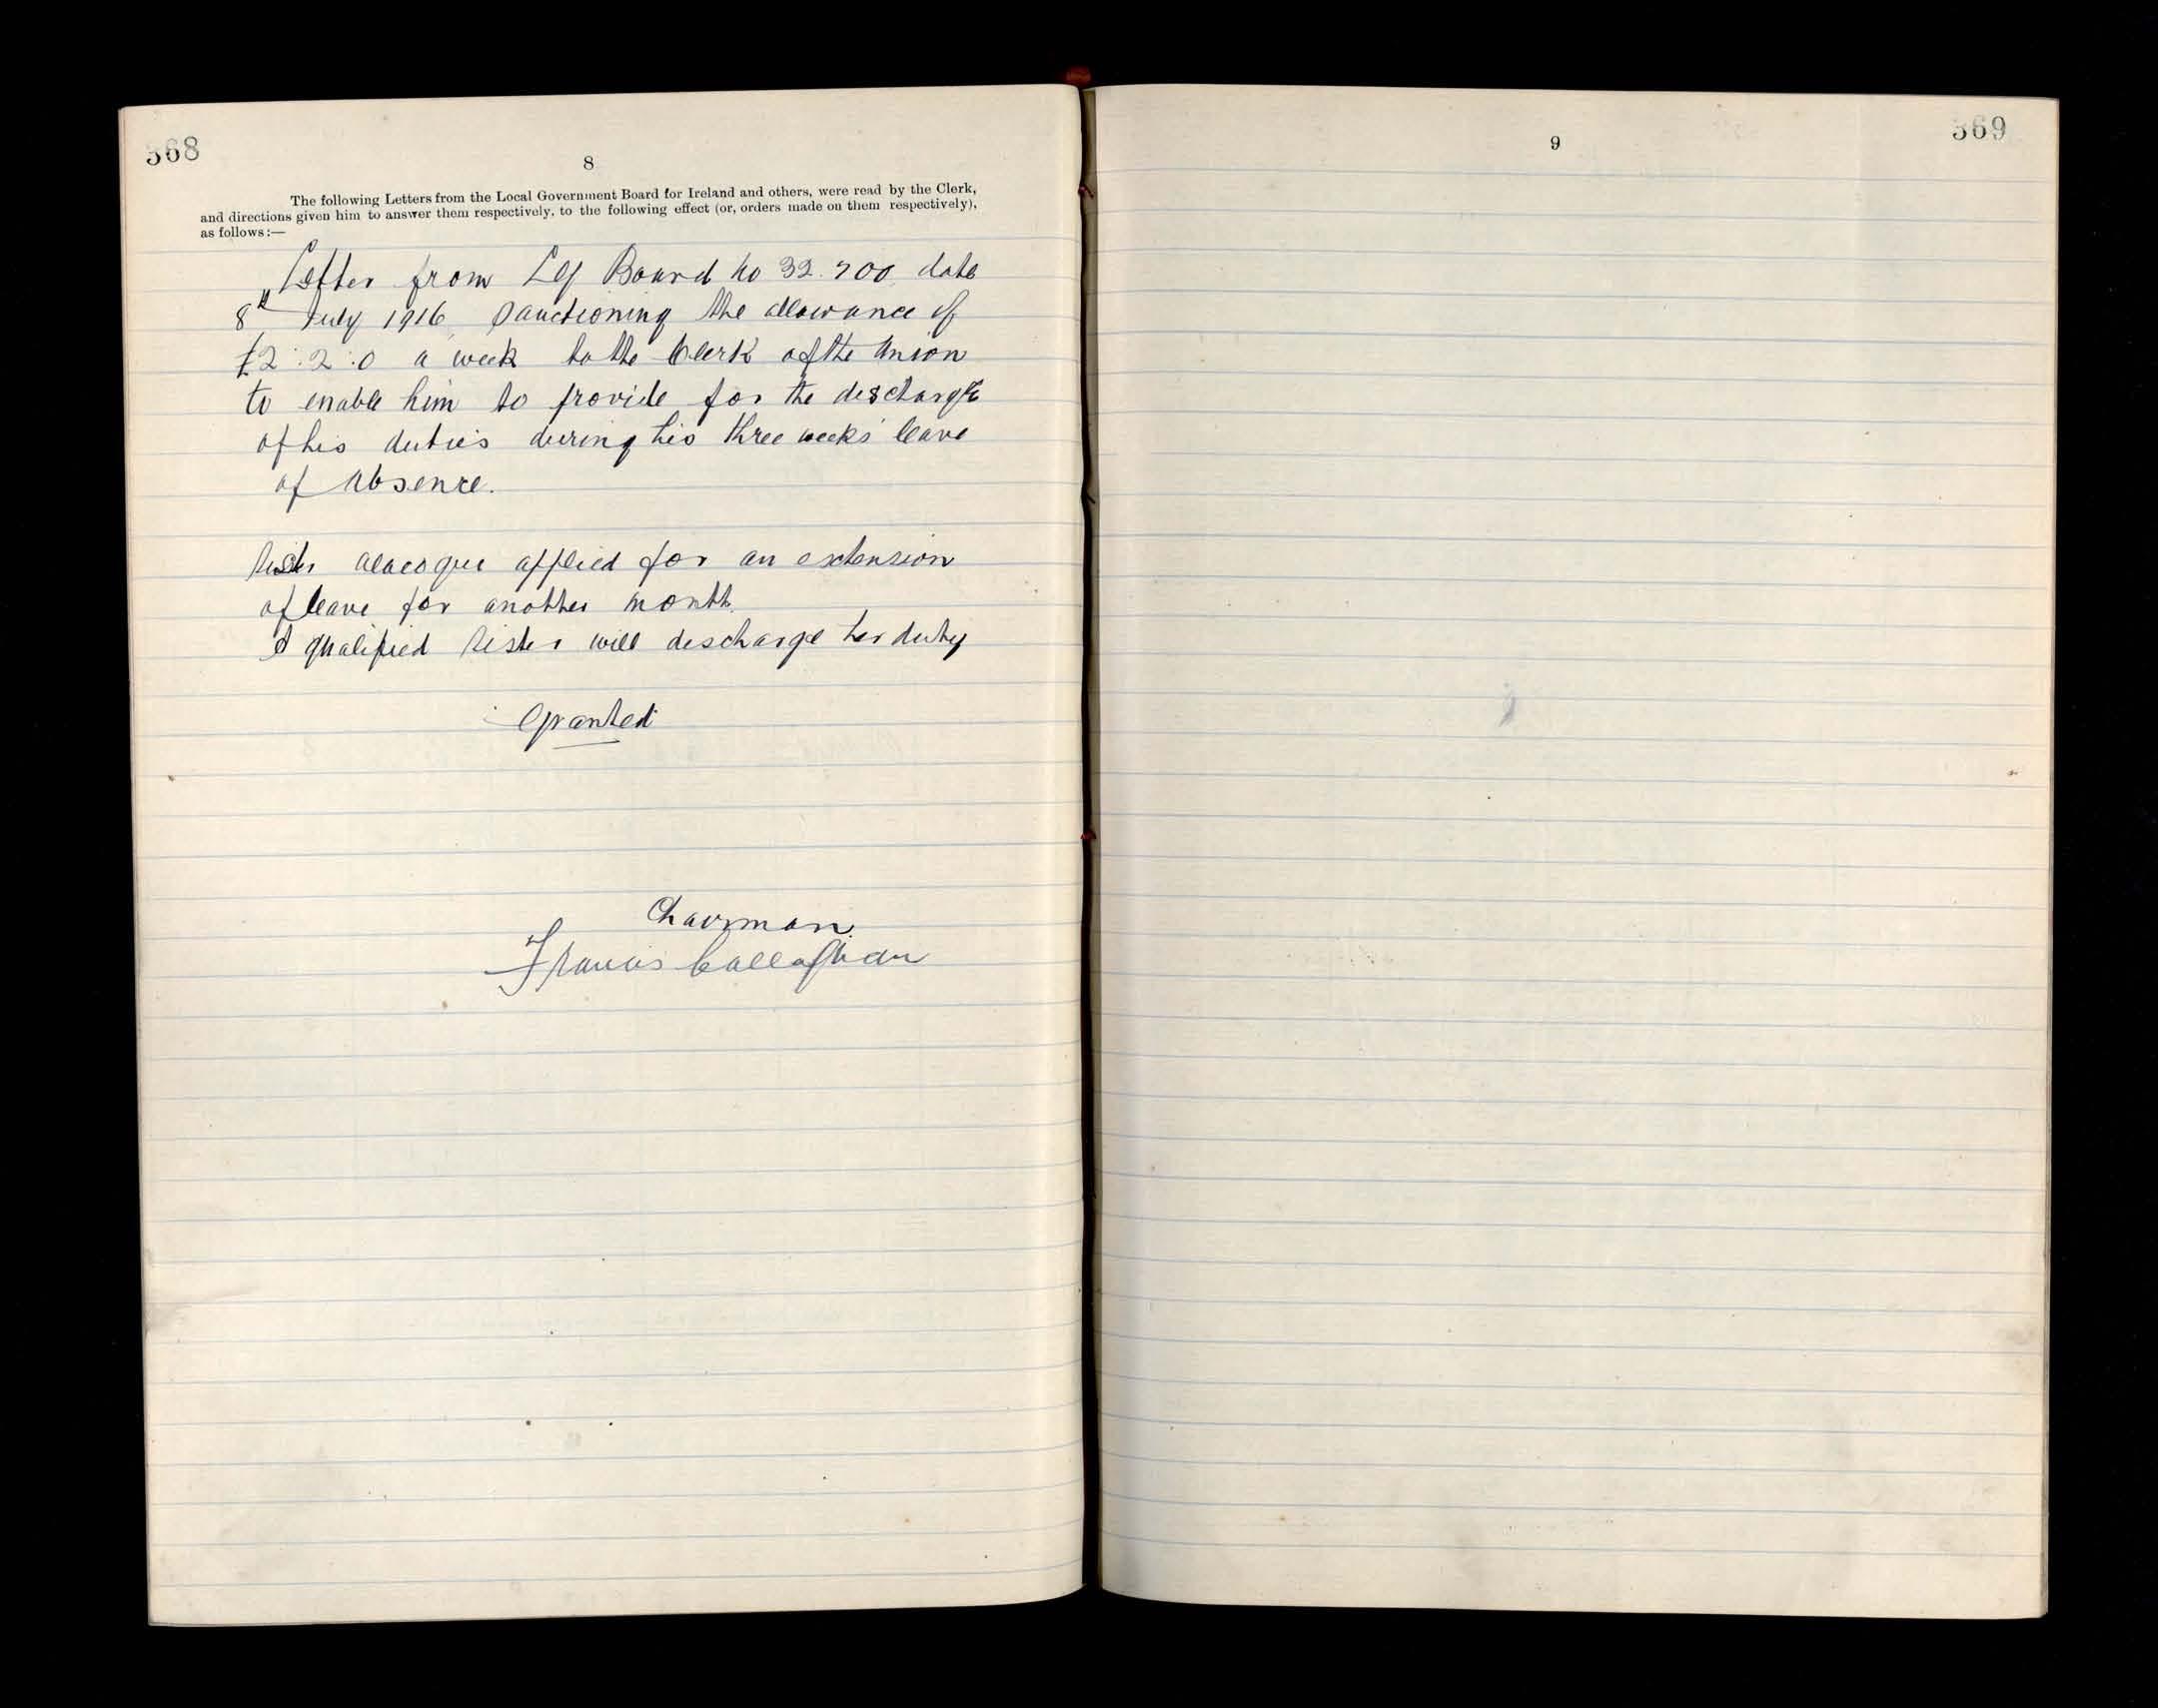 368
8
The following Letters from the Local Government Board for Ireland and others, were read by the Clerk,
and directions given him to answer them respectively, to the following effect (or, orders made on them respectively),
as follows:—
Letter from LG Board No 32.700 date
8th July 1916 Sanctioning the allowance of
£2:2:0 a week to the Clerk of the Union
to enable him to provide for the discharge
of his duties during his three weeks' leave
of Absence.
Sister Alacoque applied for an extension
of leave for another month.
A qualified Sister will discharge her duty
Granted
Chairman
Francis Callaghan
9
369